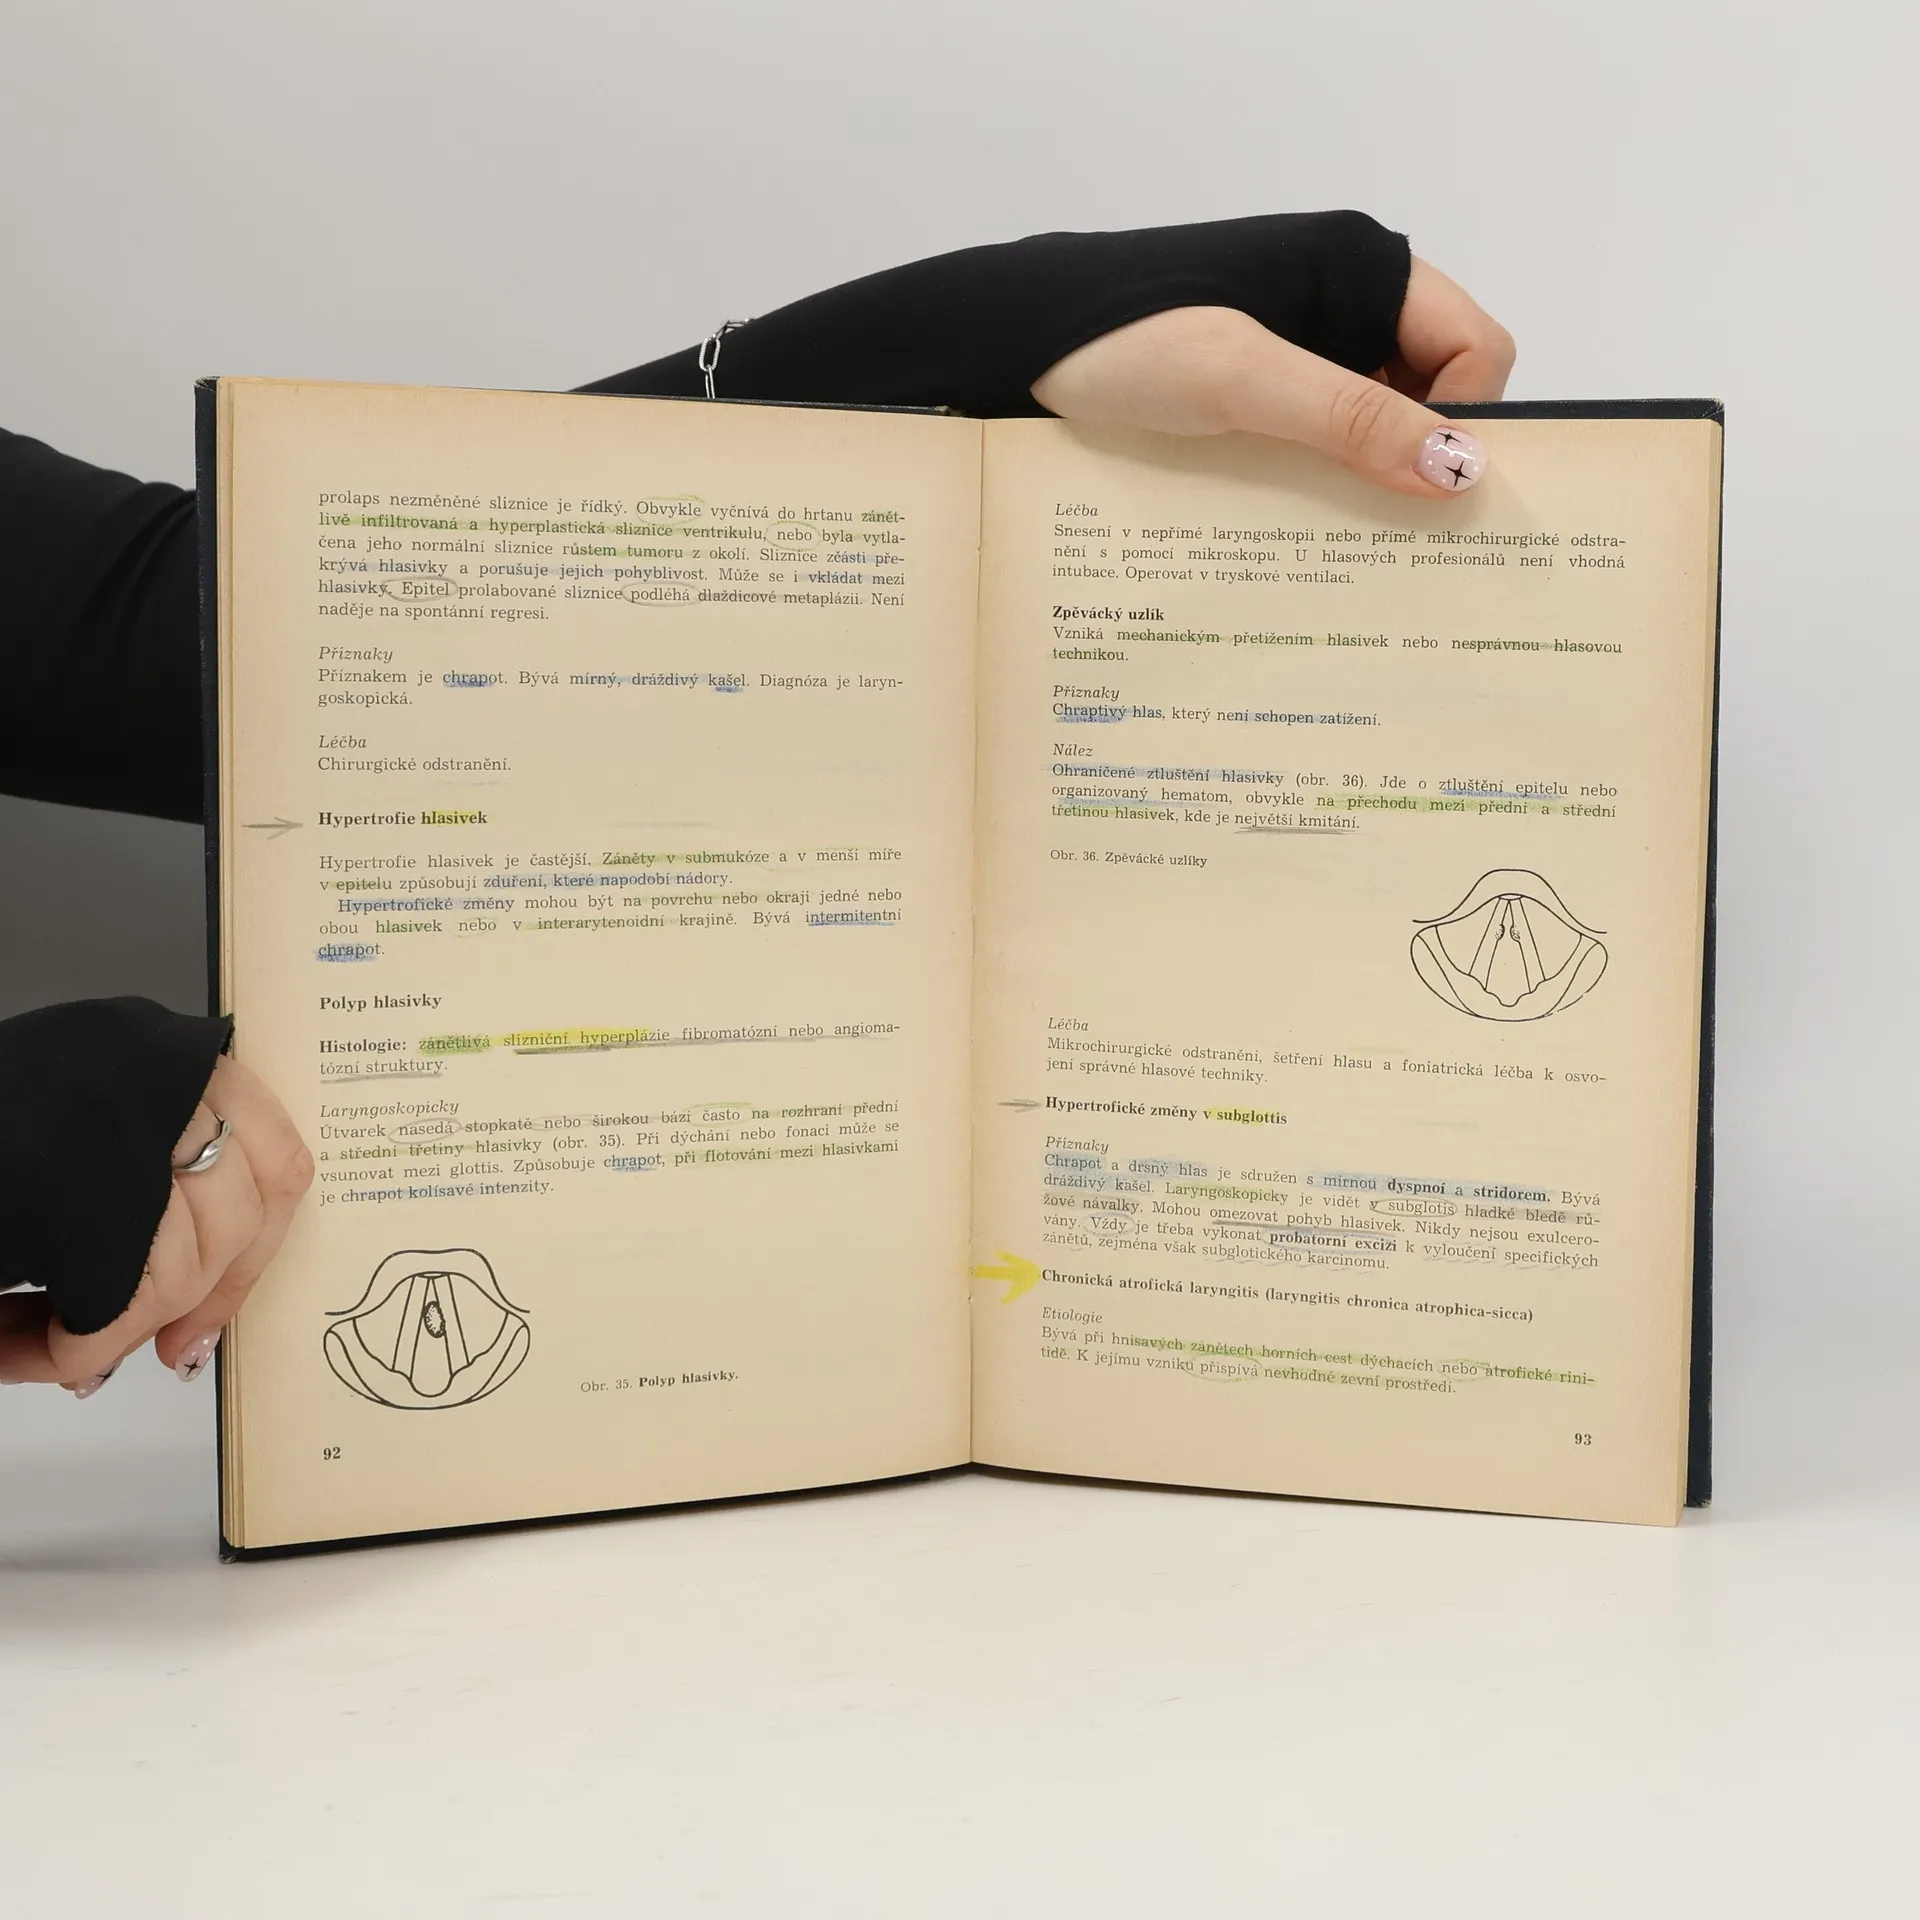 prolaps nezměněné sliznice je řídký. Obvykle vyčnívá do hrtanu zánět-
livě infiltrovaná a hyperplastická sliznice ventrikulu, nebo byla vytla-
čena jeho normální sliznice růstem tumoru z okolí. Sliznice zčásti pře-
krývá hlasivky a porušuje jejich pohyblivost. Může se i vkládat mezi
hlasivky. Epitel prolabované sliznice podléhá dlaždicové metaplázii. Není
naděje na spontánní regresi.
Příznaky
Příznakem je chrapot. Bývá mírný, dráždivý kašel. Diagnóza je laryn-
goskopická.
Léčba
Chirurgické odstranění.
Hypertrofie hlasivek
Hypertrofie hlasivek je častější. Záněty v submukóze a v menší míře
v epitelu způsobují zduření, které napodobí nádory.
Hypertrofické změny mohou být na povrchu nebo okraji jedné nebo
obou hlasivek nebo v interarytenoidní krajině. Bývá intermitentní
chrapot.
Polyp hlasivky
Histologie: zánětlivá slizniční hyperplázie fibromatózní nebo angioma-
tózní struktury.
Laryngoskopicky
Útvarek nasedá stopkatě nebo širokou bází často na rozhraní přední
a střední třetiny hlasivky (obr. 35). Při dýchání nebo fonaci může se
vsunovat mezi glottis. Způsobuje chrapot, při flotování mezi hlasivkami
je chrapot kolísavé intenzity.
Obr. 35. Polyp hlasivky.
92
Léčba
Snesení v nepřímé laryngoskopii nebo přímé mikrochirurgické odstra-
nění s pomocí mikroskopu. U hlasových profesionálů není vhodná
intubace. Operovat v tryskové ventilaci.
Zpěvácký uzlík
Vzniká mechanickým přetížením hlasivek nebo nesprávnou hlasovou
technikou.
Příznaky
Chraptivý hlas, který není schopen zatížení.
Nález
Ohraničené ztluštění hlasivky (obr. 36). Jde o ztluštění epitelu nebo
organizovaný hematom, obvykle na přechodu mezi přední a střední
třetinou hlasivek, kde je největší kmitání.
Obr. 36. Zpěvácké uzlíky
Léčba
Mikrochirurgické odstranění, šetření hlasu a foniatrická léčba k osvo-
jení správné hlasové techniky.
Hypertrofické změny v subglottis
Příznaky
Chrapot a drsný hlas je sdružen s mírnou dyspnoí a stridorem. Bývá
dráždivý kašel. Laryngoskopicky je vidět v subglotis hladké bledě rů-
žové návalky. Mohou omezovat pohyb hlasivek. Nikdy nejsou exulcero-
vány. Vždy je třeba vykonat probatorní excizi k vyloučení specifických
zánětů, zejména však subglotického karcinomu.
Chronická atrofická laryngitis (laryngitis chronica atrophica-sicca)
Etiologie
Bývá při hnisavých zánětech horních cest dýchacích nebo atrofické rini-
tidě. K jejímu vzniku přispívá nevhodné zevní prostředí.
93